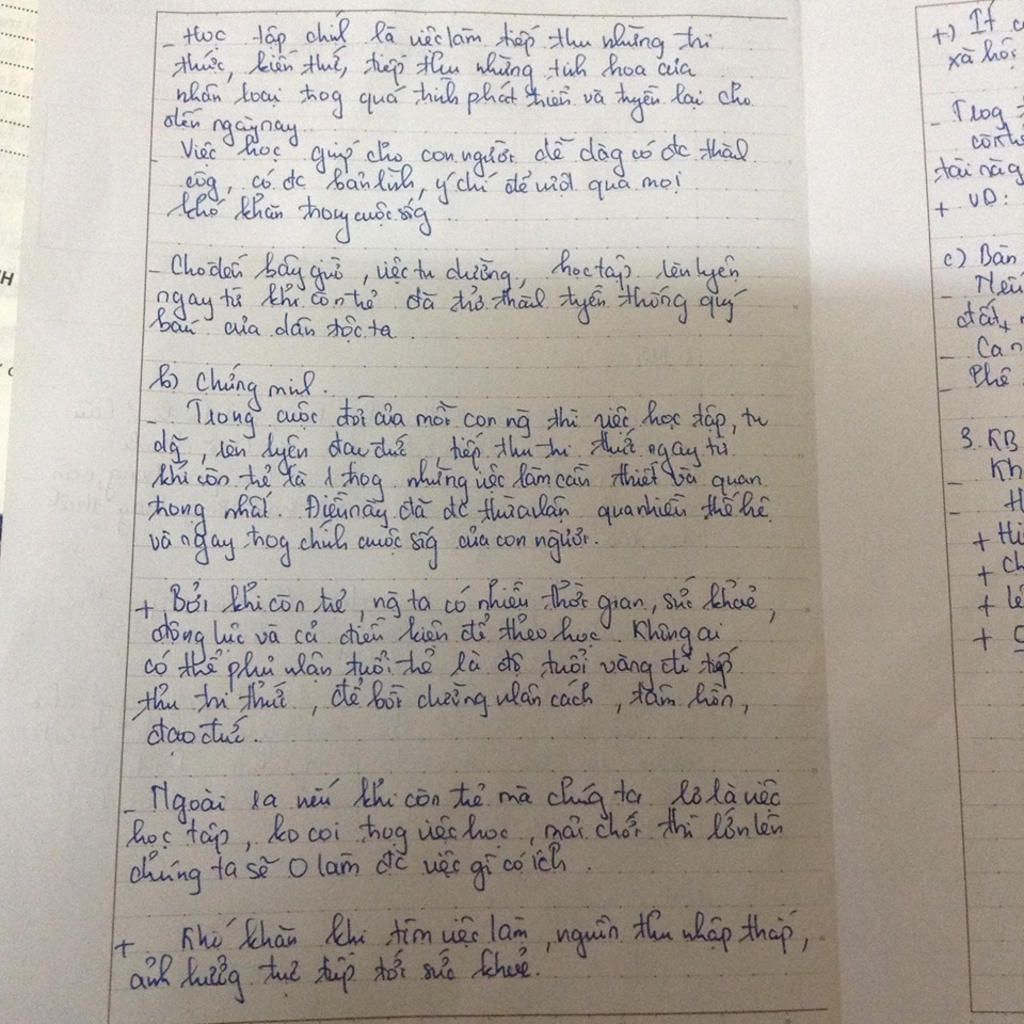 - Học tập chính là việc làm tiếp thu những tri
thức, kiến thức, tiếp thu những tinh hoa của
nhân loại trog quá trình phát triển và truyền lại cho
đến ngày nay.
- Việc học giúp cho con người dễ dàg có đc thành
côg, có đc bản lĩnh, ý chí để vượt qua mọi
khó khăn trong cuộc sốg
- Cho đến bây giờ, việc tu dưỡng, học tập, rèn luyện
ngay từ khi còn trẻ đã trở thành truyền thống quý
báu của dân tộc ta.
b) Chứng minh.
- Trong cuộc đời của mỗi con ng thì việc học tập, tu
dg, rèn luyện đạo đức, tiếp thu tri thức ngay từ
khi còn trẻ là 1 trog những việc làm cần thiết và quan
trọng nhất. Điều này đã đc thừa nhận qua nhiều thế hệ
và ngay trog chính cuộc sốg của con người.
+ Bởi khi còn trẻ, ng ta có nhiều thời gian, sức khoẻ,
động lực và cả điều kiện để theo học. Không ai
có thể phủ nhận tuổi trẻ là độ tuổi vàng để tiếp
thu tri thức, để bồi dưỡng nhân cách, tâm hồn,
đạo đức.
- Ngoài ra nếu khi còn trẻ mà chúg ta lơ là việc
học tập, ko coi trọg việc học, mải chơi thì lớn lên
chúng ta sẽ 0 làm đc việc gì có ích.
+ Khó khăn khi tìm việc làm, nguồn thu nhập thấp,
ảnh hưởng trực tiếp tới sức khoẻ.
+)
xã hội
- Trog
tài năg
+ VD:
c) Bàn
- Nếu
đất
-
- Phê
3. KB
-
-
+
+
+
+